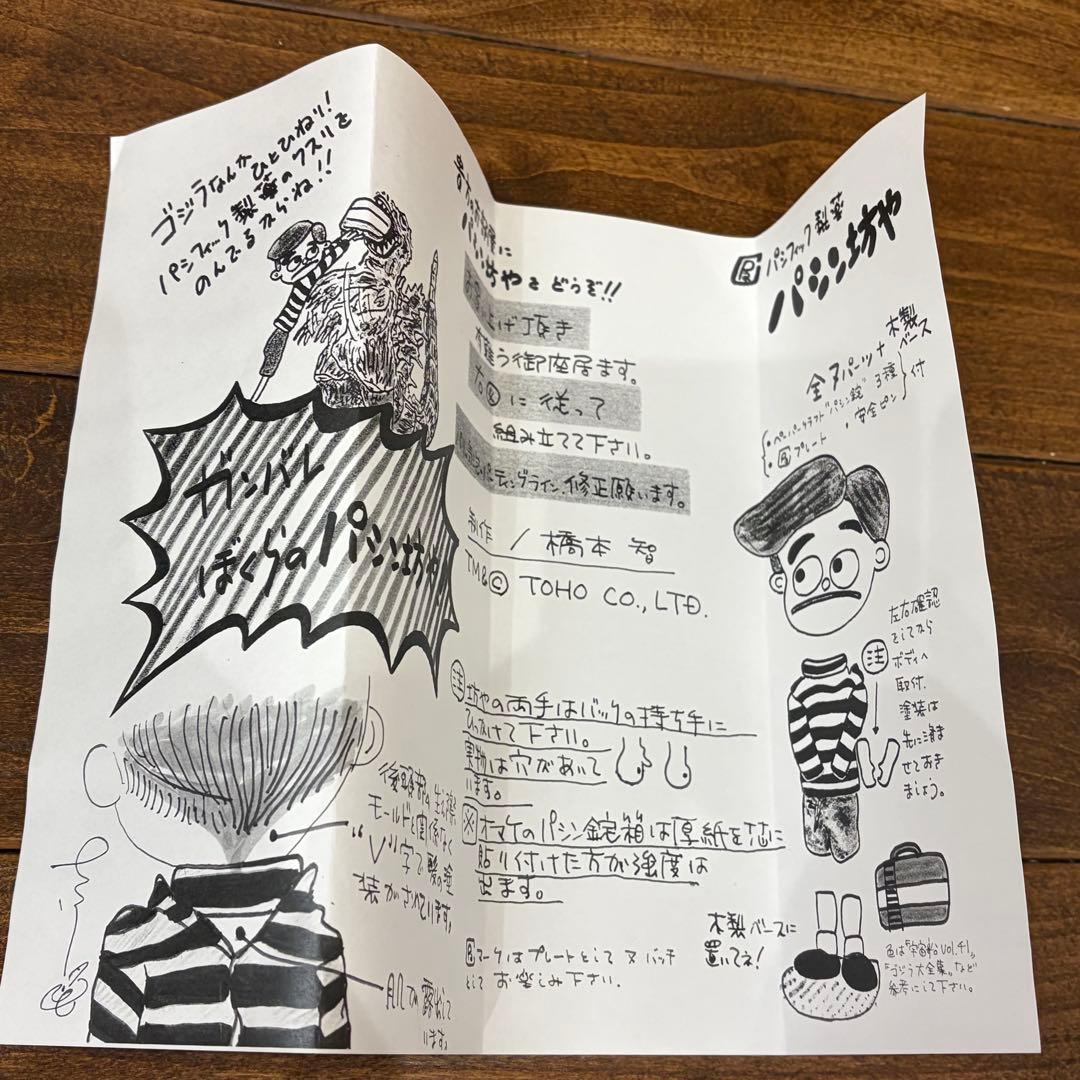 ゴジラなんか
ひとひねり!
パシフィック製薬のクスリを
のんでるからね!!
ガンバレ
ぼくらのパシン坊や
後頭部の生え際
モールドと関係なく
“V”字で髪の塗
装がされています。
肌が露出して
います。
パシン坊やをどうぞ!!
お買い上げ頂き
有難う御座居ます。
右図に従って
組み立てて下さい。
パーティングライン、修正願います。
制作 / 橋本 智
TM&© TOHO CO., LTD.
注 坊やの両手はバックの持ち手に
ひっかけて下さい。
実物は穴があいて
います。
※ オマケのパシン錠箱は厚紙を芯に
貼り付けた方が強度は
出ます。
マークはプレートとして又バッチ
として お楽しみ下さい.
パシフィック製薬
パシン坊や
全7パーツ+木製
ベース
・ペーパークラフト“パシン錠”3種
・プレート ・安全ピン
付
左右確認
をしてから
ボディへ
取付.
塗装は
先に済ま
せておき
ましょう。
注
木製ベースに
置いてネ!
色は「宇宙船Vol.41」,
「ゴジラ大全集」など
参考にして下さい。